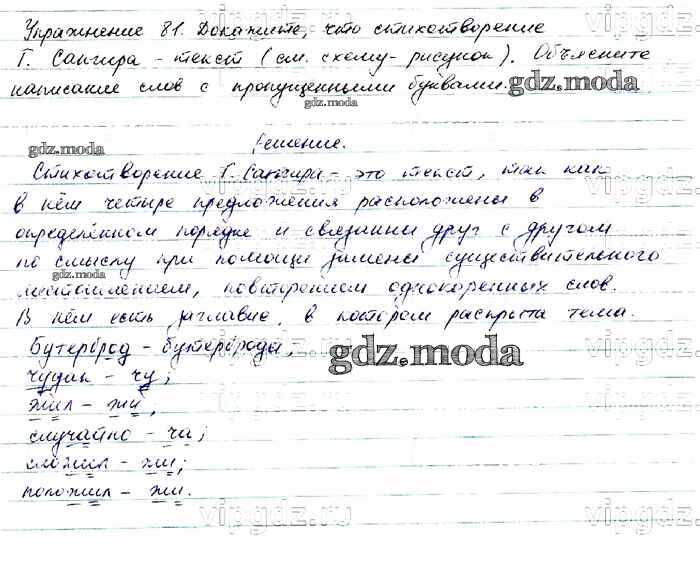 Упражнение 81. Докажите, что стихотворение
Г. Сапгира - текст (см. схему-рисунок). Объясните
написание слов с пропущенными буквами.
gdz.moda
gdz.moda
Решение.
gdz.moda
Стихотворение Г. Сапгира - это текст, так как
в нём четыре предложения расположены в
определённом порядке и связаны друг с другом
по смыслу при помощи замены существительного
gdz.moda
местоимением, повторением однокоренных слов.
В нём есть заглавие, в котором раскрыта тема.
Бутерброд - бутерброды,
gdz.moda
чудак - чу;
жил - жи,
случайно - ча;
сложил - жи;
положил - жи.
vipgdz.ru
vipgdz.ru
vipgdz.ru
vipgdz.ru
vipgdz.ru
vipgdz.ru